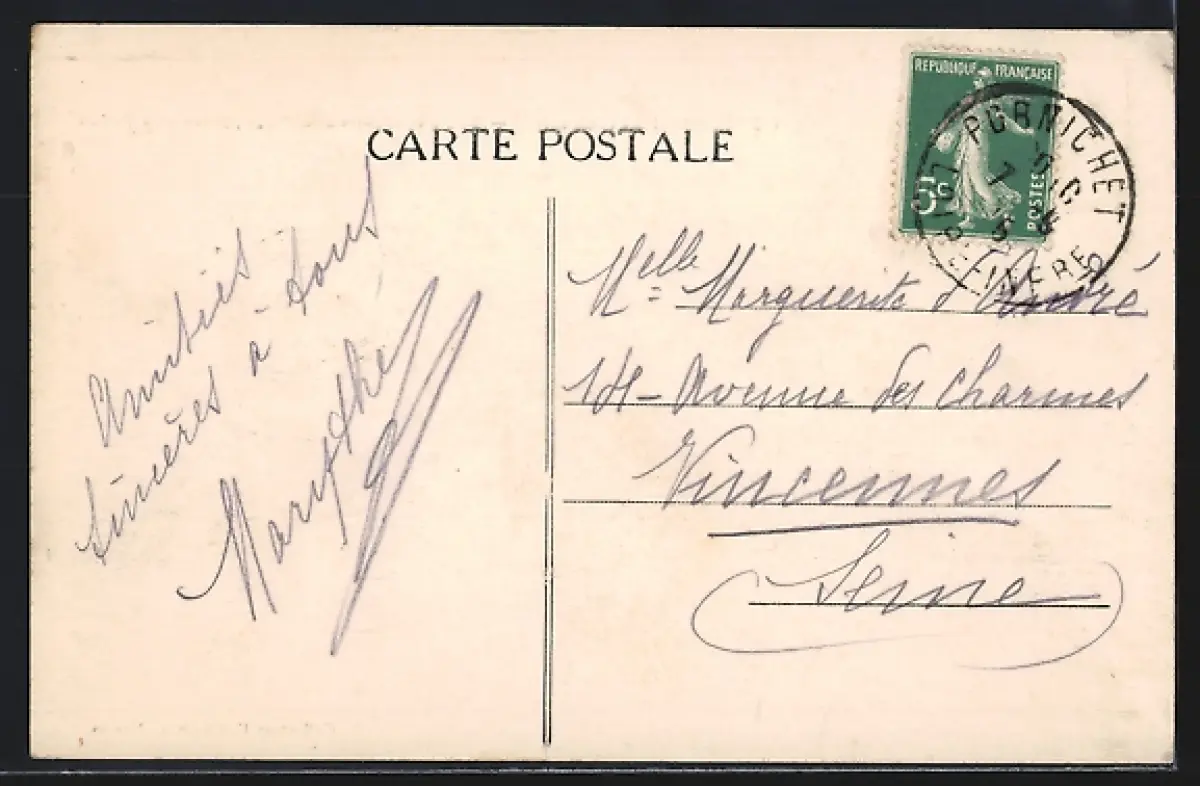 CARTE POSTALE
REPUBLIQUE FRANÇAISE
5c
POSTES
PORNICHET
LOIRE INFERE
Amitiés
sincères à tous
Marythé
Melle Marguerite d'André
14 - Avenue des Charmes
Vincennes
Seine